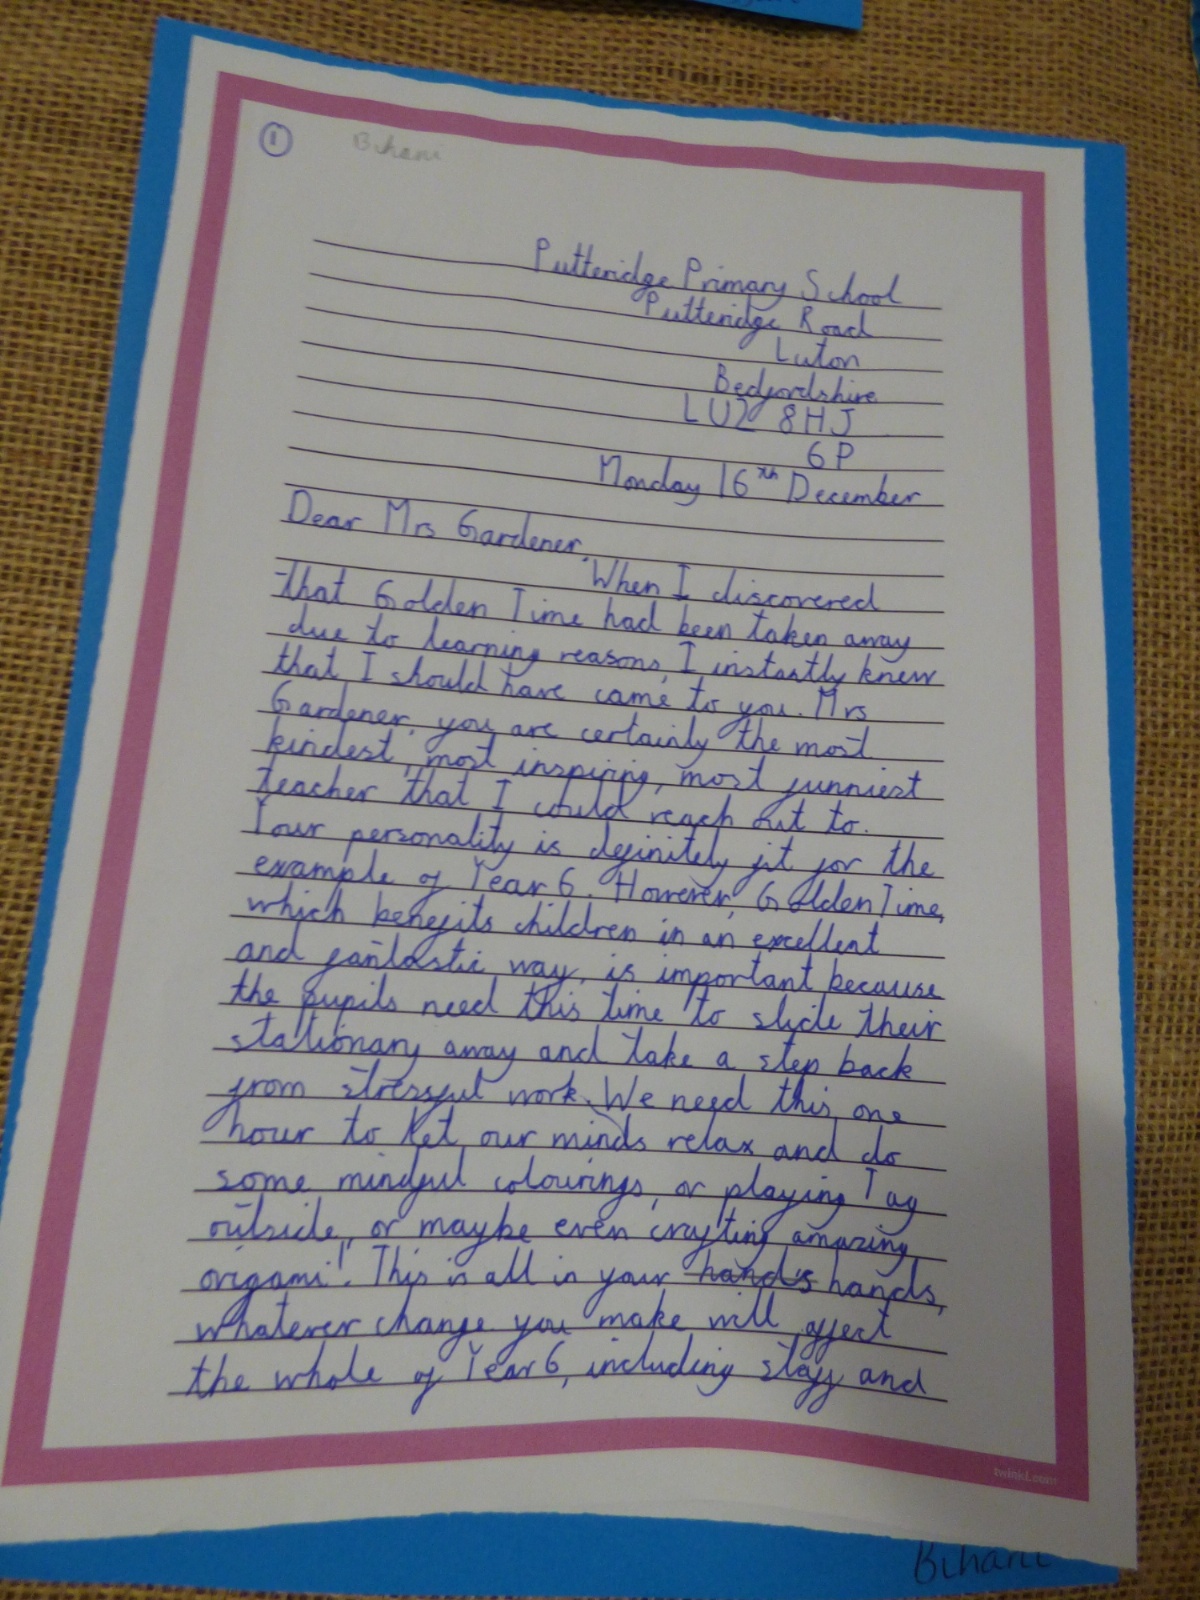 1
Bihani
Putteridge Primary School
Putteridge Road
Luton
Bedfordshire
LU2 8HJ
6P
Monday 16th December
Dear Mrs Gardener,
When I discovered
that Golden Time had been taken away
due to learning reasons, I instantly knew
that I should have came to you. Mrs
Gardener, you are certainly the most
kindest, most inspiring, most funniest
teacher that I could reach out to.
Your personality is definitely fit for the
example of Year 6. However, Golden Time,
which benefits children in an excellent
and fantastic way, is important because
the pupils need this time to slide their
stationary away and take a step back
from stressful work. We need this one
hour to let our minds relax and do
some mindful colourings, or playing Tag
outside, or maybe even crafting amazing
origami! This is all in your hand's hands,
whatever change you make will affect
the whole of Year 6, including staff and
twinkl.com
Bihani